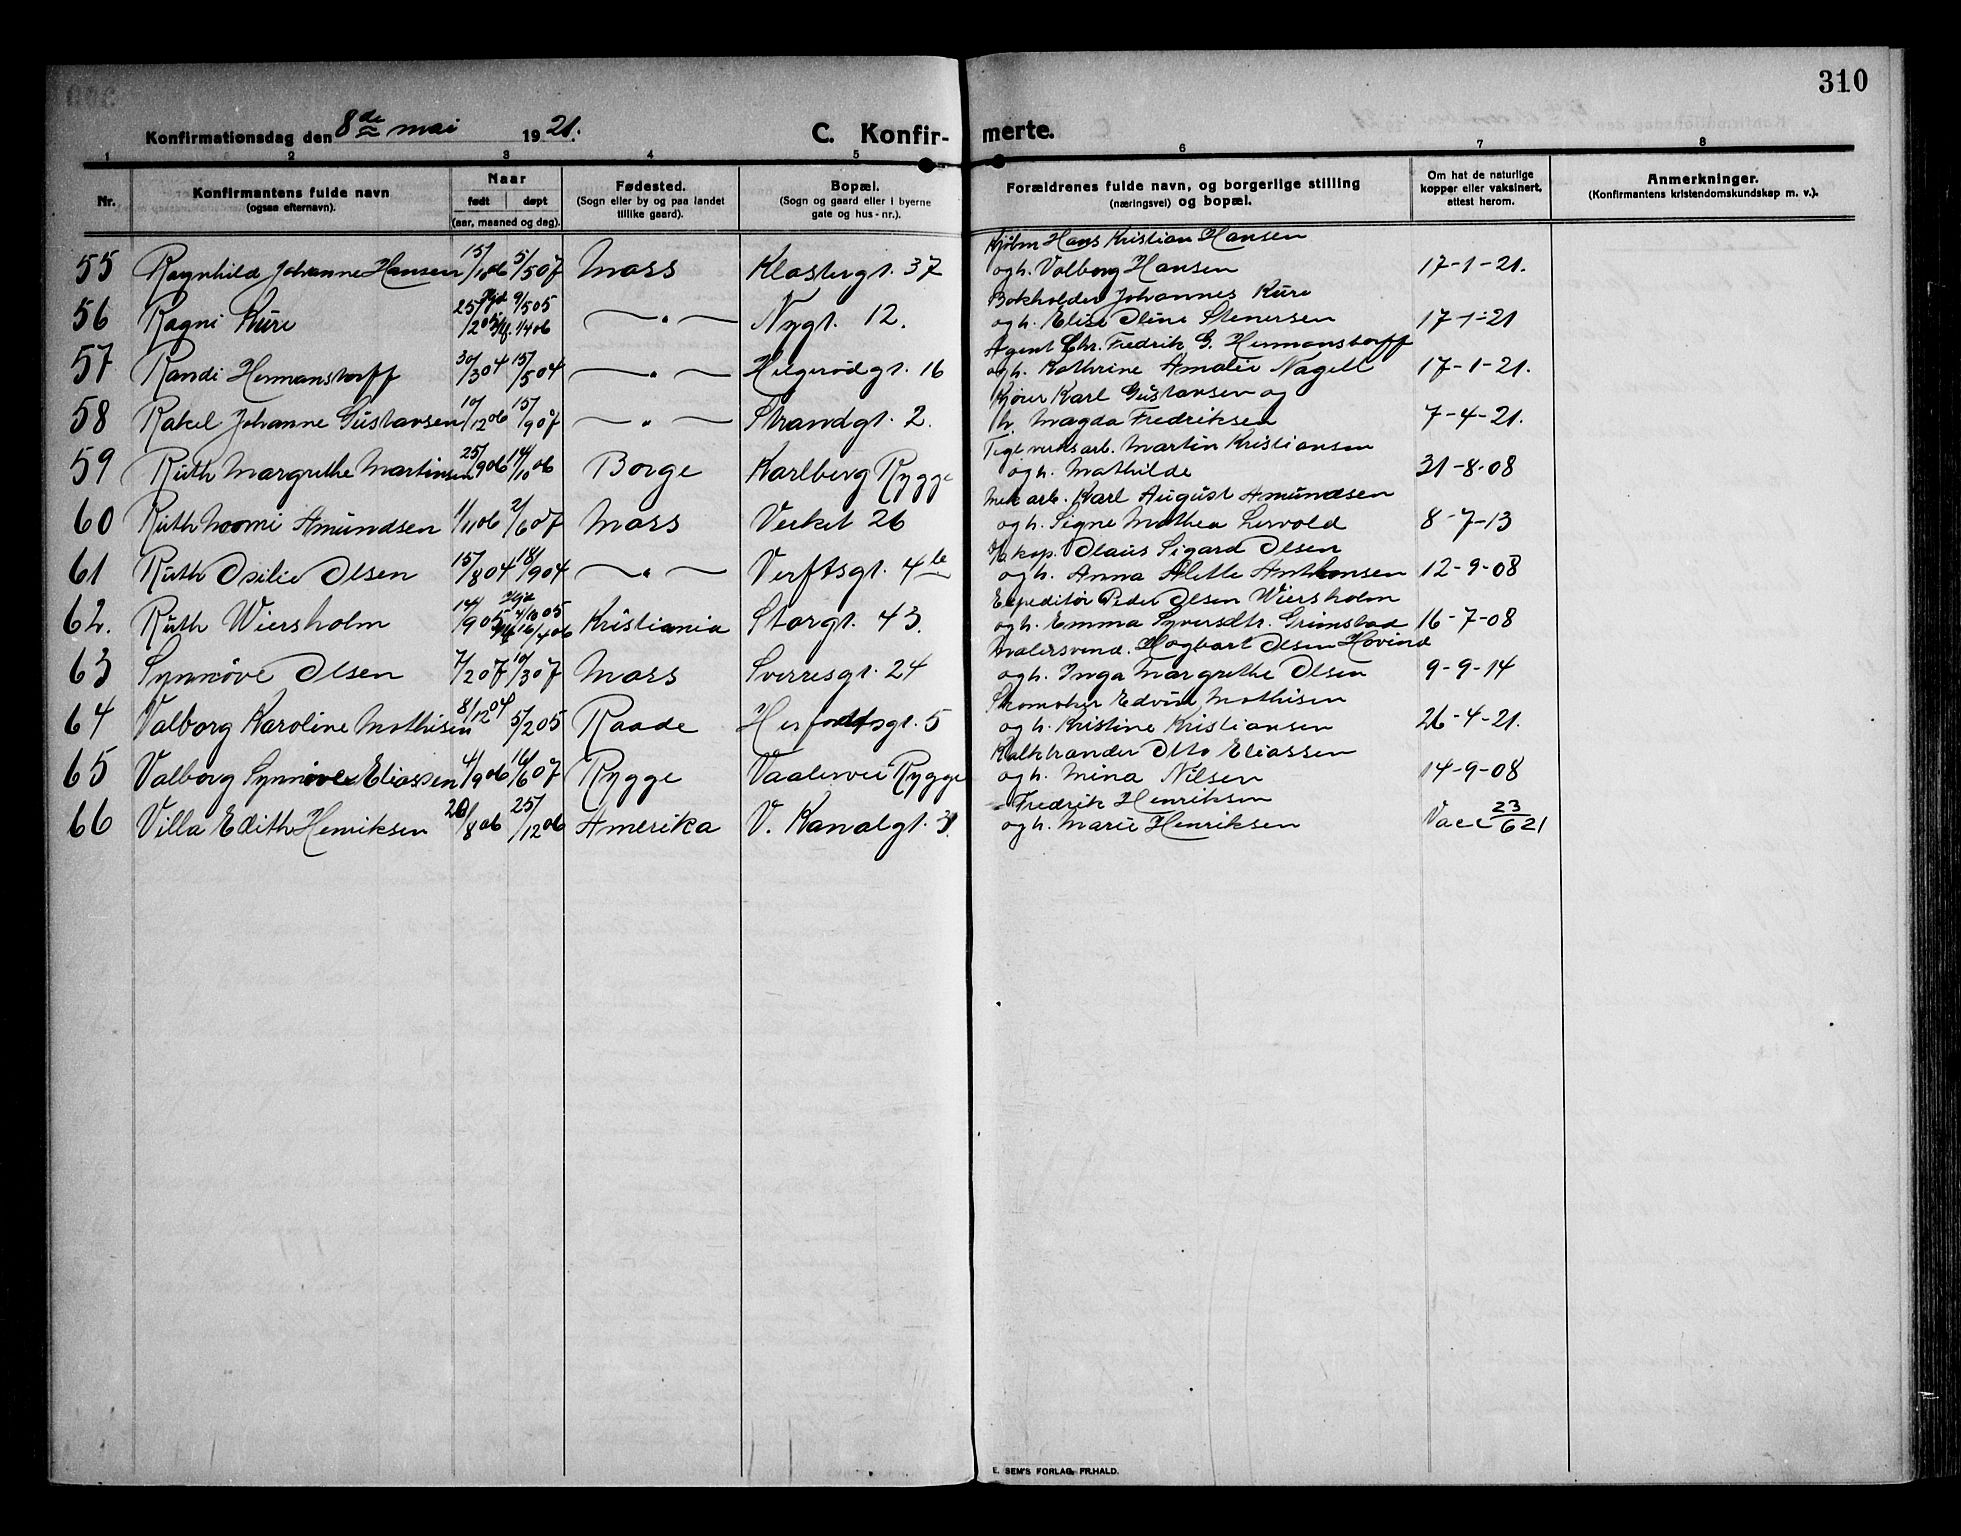 310
Konfirmationsdag den 8de mai 1921. C. Konfirmerte.
1 2 3 4 5 6 7 8
Nr. Konfirmantens fulde navn (ogsaa efternavn). Naar født døpt (aar, maaned og dag). Fødested. (Sogn eller by og paa landet tillike gaard). Bopæl. (Sogn og gaard eller i byerne gate og hus-nr.). Forældrenes fulde navn, og borgerlige stilling (næringsvei) og bopæl. Om hat de naturlige kopper eller vaksinert, attest herom. Anmerkninger. (Konfirmantens kristendomskundskap m. v.).
Hans Kristian Hansen
55 Ragnhild Johanne Hansen 15/1 06 5/5 07 Moss Klostergt. 37 og h. Valborg Hansen 17-1-21.
Bokholder Johannes Kure
56 Ragni Kure 25/2 05 9/5 05 1/4 06 — " — Nygt. 12. og h. Elise Oline Stenersen 17-1-21
Agent Chr. Fredrik G. Hermanstorff
57 Randi Hermanstorff 30/3 04 15/5 04 — " — Helgerødgt. 16 og h. Kathrine Amalie Nagell 17-1-21.
Kjører Karl Gustavsen og
58 Rakel Johanne Gustavsen 10/12 06 15/9 07 — " — Strandgt. 2. h. Magda Fredriksen 7-4-21.
Teglverksarb. Martin Kristiansen
59 Ruth Margrethe Martinsen 25/9 06 14/10 06 Borge Karlberg Rygge og h. Mathilde 31-8-08
Mek arb. Karl August Amundsen
60 Ruth Noomi Amundsen 1/11 06 2/6 07 Moss Verket 26 og h. Signe Mathea Lervold 8-7-13
Olaus Sigard Olsen
61 Ruth Osilie Olsen 15/8 04 18/9 04 — " — Verftsgt. 4 og h. Anna Alette Anthonsen 12-9-08
Expeditør Peder Olsen Wiersholm
62. Ruth Wiersholm 14/9 05 4/10 05 16/4 06 Kristiania Storgt. 43. og h. Emma Syversdtr. Grimstad 16-7-08
Malersvend. Hagbart Olsen Hovind
63 Synnøve Olsen 7/2 07 10/3 07 Moss Sverresgt. 24 og h. Inga Margrethe Olsen 9-9-14
Skomaker Edvin Mathisen
64 Valborg Karoline Mathisen 8/12 04 5/2 05 Raade Herfødtsgt. 5 og h. Kristine Kristiansen 26-4-21.
Kalkbrander Otto Eliassen
65 Valborg Synnøve Eliassen 4/9 06 16/6 07 Rygge Vaalervei Rygge og h. Mina Nilsen 14-9-08
Fredrik Henriksen
66 Villa Edith Henriksen 20/8 06 25/12 06 Amerika V. Kanalgt. 3 og h. Marie Henriksen Vacc 23/6 21
E. SEM'S FORLAG, FR.HALD.